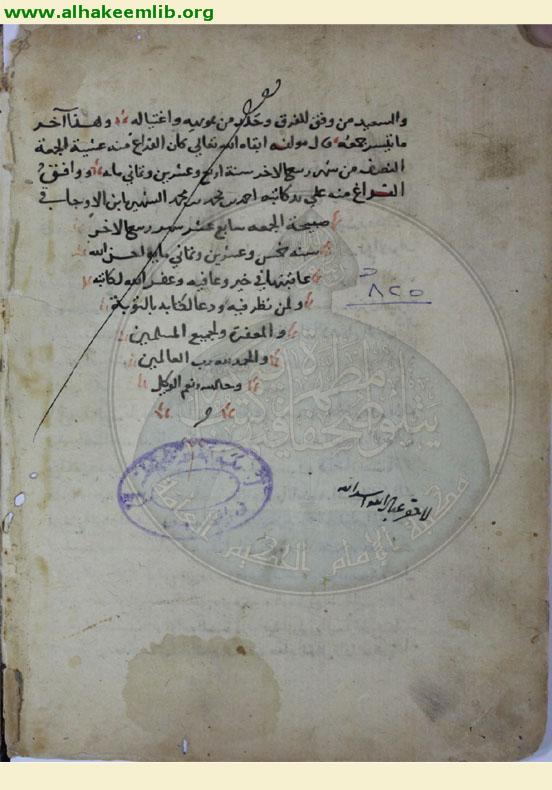 www.alhakeemlib.org
والسعيد من وفق للفرق وحذر من واغتياله وهذا آخر
ما تيسر جمعه قال مولفه ابقاه الله تعالى كان الفراغ منه عشية الجمعة
النصف من شهر ربيع الاخر سنة اربع وعشرين وثماني مايه ووافق
الفراغ منه على يد كاتبه احمد بن محمد بن محمد الشهير بابن الاوجاقي
صبيحة الجمعه سابع عشر شهر ربيع الاخر
سنه خمس وعشرين وثماني مايه احسن الله
عاقبتها في خير وعافيه وغفر الله لكاتبه
ولمن نظر فيه ودعا لكاتبه بالتوبة
والمغفرة ولجميع المسلمين
والحمد لله رب العالمين
وحسبنا الله ونعم الوكيل
٨٢٥
مكتبة الإمام الحكيم العامة